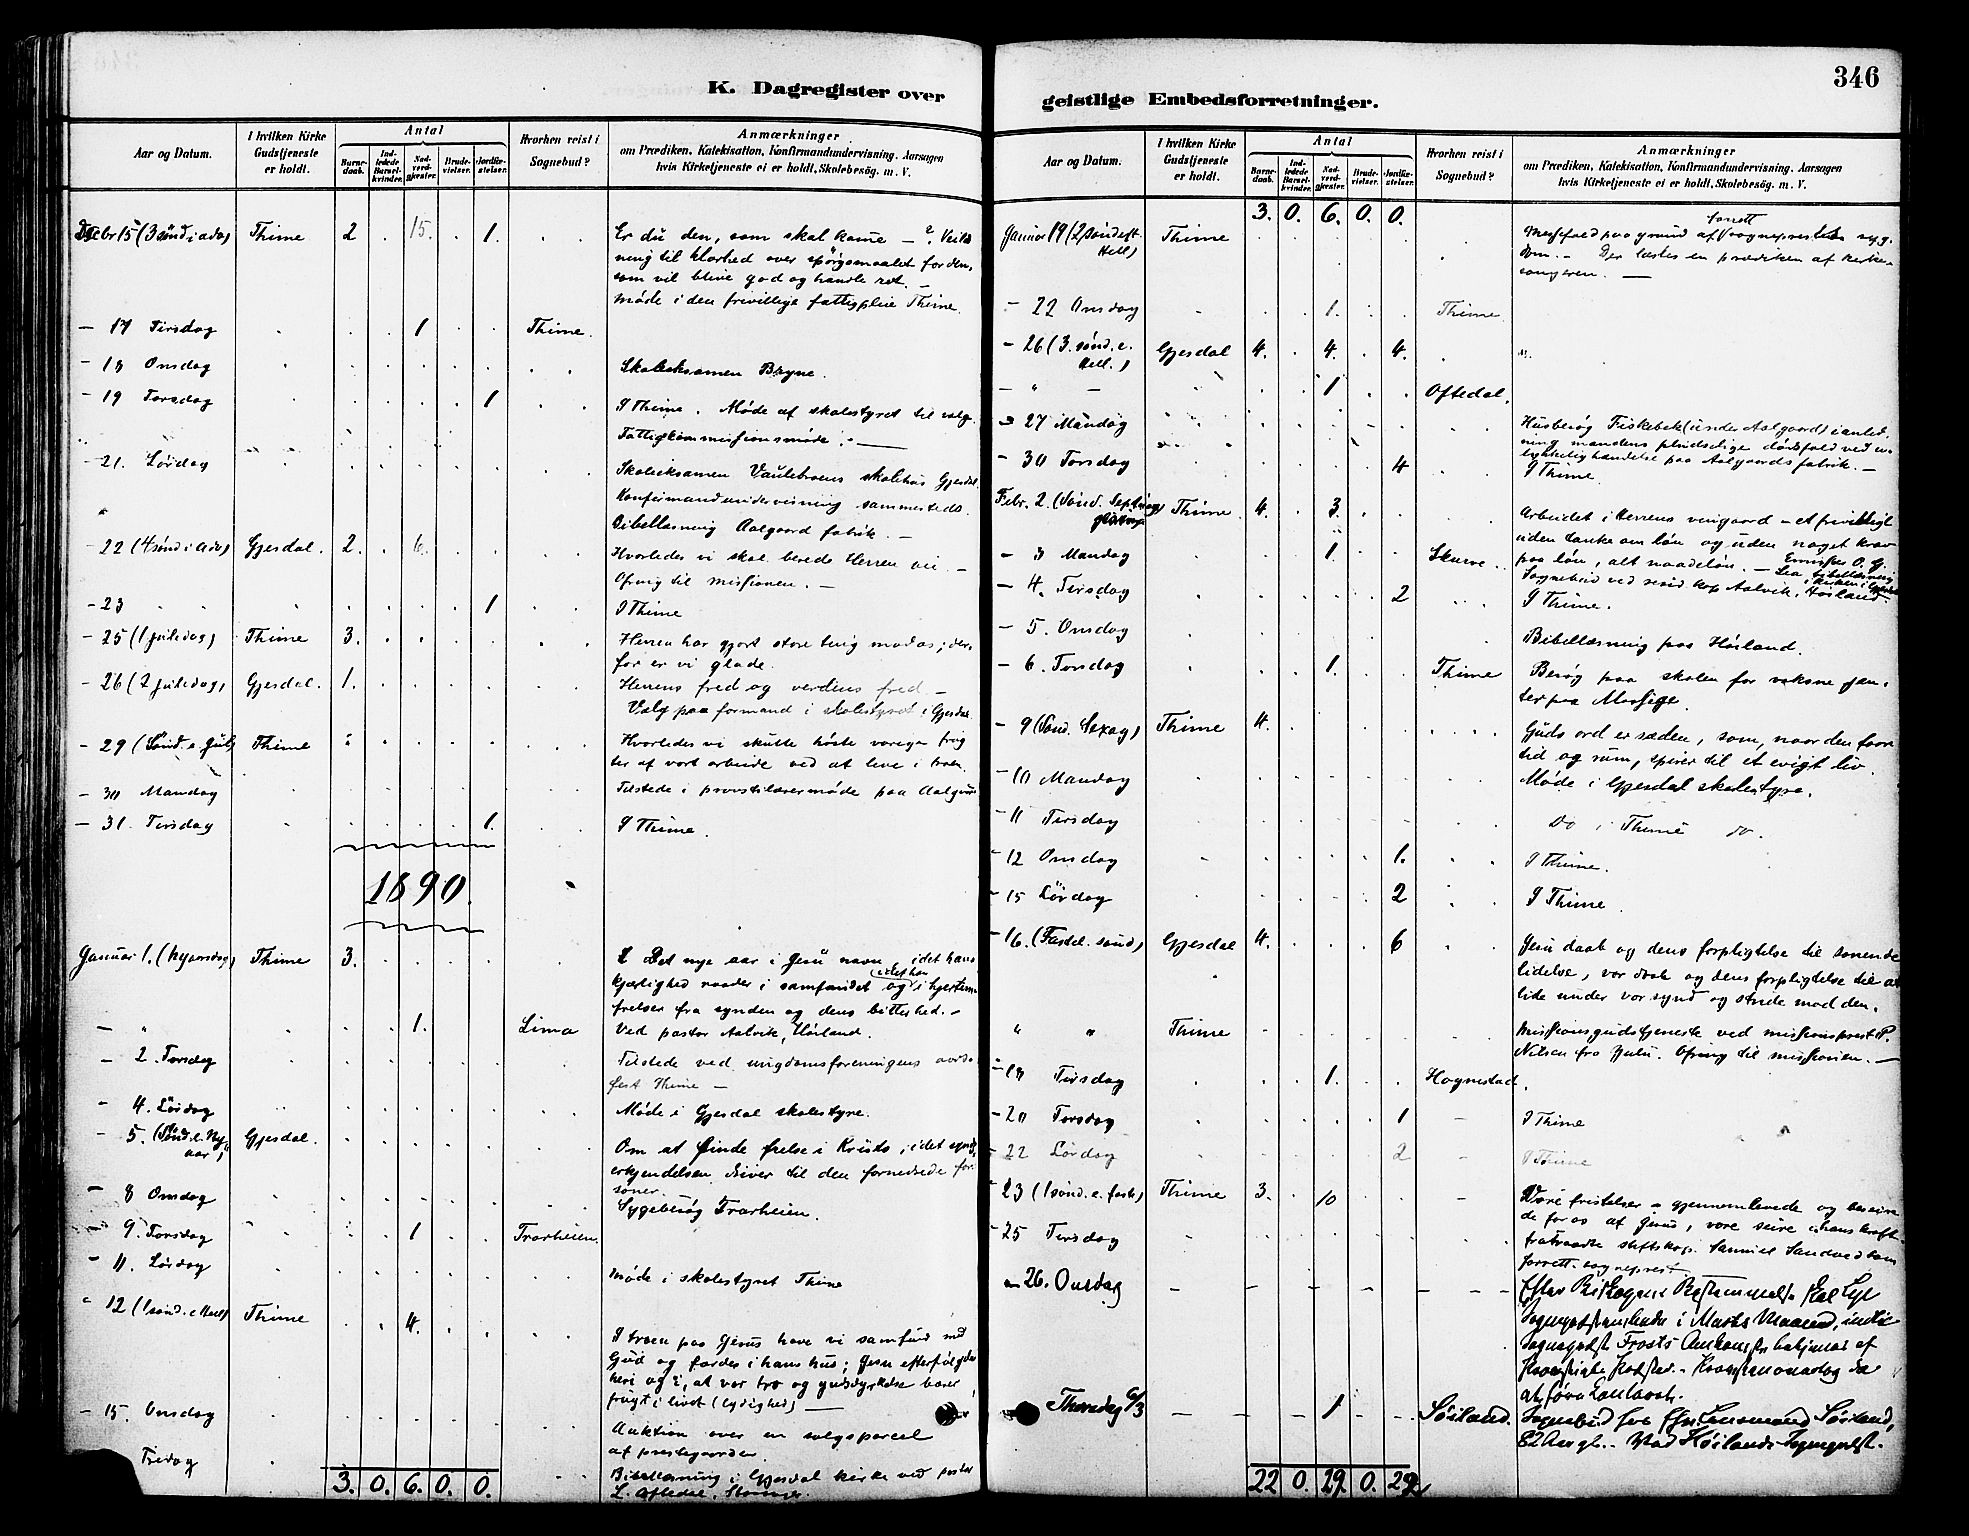 346
K. Dagregister over
geistlige Embedsforretninger.
Aar og Datum.
I hvilken Kirke Gudstjeneste er holdt.
Antal
Barnedaab.
Indledede Barselkvinder.
Nadverdgjester.
Brudevielser.
Jordfæstelser.
Hvorhen reist i Sognebud?
Anmærkninger
om Prædiken, Katekisation, Konfirmandundervisning. Aarsagen
hvis Kirketjeneste ei er holdt, Skolebesøg. m. V.
Decbr 15 (3 sønd i adv) Thime 2 . 15. . 1. Er du den, som skal komme — ?
ning til klarhed over spørgsmaalet for den,
som vil blive god og handle ret. —
Møde i den frivillige fattigpleie Thime.
— 17 Tirsdag 1 Thime.
— 18 Onsdag Skoleeksamen Bryne.
— 19 Torsdag 1 I Thime. Møde af skolestyret til valg
Fattigkommissionsmøde. —
— 21. Lørdag Skoleeksamen Vaulebroens skolehus Gjesdal.
Konfirmandundervisning sammesteds.
Bibellæsning Aalgaard fabrik. —
— 22 (4 sønd i adv) Gjesdal. 2. . 6. Hvorledes vi skal berede Herren vei —
Ofring til missionen. —
— 23 1 I Thime
— 25 (1 juledag) Thime 3. Herren har gjort store ting mod os; der-
for er vi glade.
— 26 (2 juledag) Gjesdal. 1. Herrens fred og verdens fred —
Valg paa formand i skolestyret i Gjesdal
— 29 (Sønd. e. Jul) Thime Hvorledes vi skulle høste varige frug
ter af vort arbeide ved at leve i troen.
— 30 Mandag Tilstede i provstilærermøde paa Aalgaard
— 31. Tirsdag 1. I Thime.
1890.
Januar 1. (Nyaarsdag) Thime 3. Det nye aar i Jesu navn idet hans
kjærlighed raader i samfundet og idet han i hjertene
frelser fra synden og dens bitterhed. —
— " 1. Lima Ved pastor Aalvik, Høiland.
— 2. Torsdag Tilstede ved ungdomsforeningens aars-
fest Thime —
— 4. Lørdag Møde i Gjesdal skolestyre.
— 5. (Sønd. e. Nyaar) Gjesdal. Om at finde frelse i Kristo; idet synds
erkjendelsen driver til den fornedrede for
soner.
— 8 Onsdag Sygebesøg Trarheien.
— 9. Torsdag 1 Trarheien.
— 11. Lørdag Møde i skolestyret Thime
— 12 (1 sønd. e Hell) Thime 4. I troen paa Jesus have vi samfund med
Gud og færdes i hans hus; Jesu efterfølgelse
heri og i, at vor tro og gudsdyrkelse bærer
frugt i livet (lydighed) —
— 15. Onsdag Auktion over en salgsparcel
af prestegaarden.
Fredag Bibellæsning i Gjesdal kirke ved pastor
L. Oftedal, Stavanger.
3. 0. 6. 0. 0.
Aar og Datum.
I hvilken Kirke Gudstjeneste er holdt.
Antal
Barnedaab.
Indledede Barselkvinder.
Nadverdgjester.
Brudevielser.
Jordfæstelser.
Hvorhen reist i Sognebud?
Anmærkninger
om Prædiken, Katekisation, Konfirmandundervisning. Aarsagen
hvis Kirketjeneste ei er holdt, Skolebesøg. m. V.
3. 0. 6. 0. 0.
Januar 19 (2 sønd eft. Hell) Thime Messefald paa grund af forrett sogneprestens syg-
dom. — Der læstes en prædiken af kirke-
sangeren. —
— 22 Onsdag 1. Thime
— 26 (3. sønd. e. Hell.) Gjesdal 4. . 4. . 4.
— " — 1 Oftedal.
— 27 Mandag Husbesøg Fiskebek (under Aalgaard) i anled-
ning mandens pludselige dødsfald ved u-
lykkelig hændelse paa Aalgaards fabrik. —
— 30 Torsdag 4 I Thime.
Febr. 2. (Sønd. Septuag) Thime 4. . 3. Arbeidet i Herrens vingaard — et frivilligt
uden tanke om løn og uden noget krav
— 3 Mandag 1. Skurve paa løn, alt naadeløn. —
Sognebud ved Aalvik, Høiland.
— 4. Tirsdag 2 I Thime.
— 5. Onsdag Bibellæsning paa Høiland.
— 6. Torsdag 1. Thime Besøg paa skolen for voksne jen-
ter paa Mossige.
— 9 (Sønd. Sexag) Thime 4. Guds ord er sæden, som, naar den faar
tid og rum, spirer til et evigt liv.
— 10 Mandag Møde i Gjesdal skolestyre.
— 11 Tirsdag Do i Thime do.
— 12 Onsdag 1. I Thime.
— 15 Lørdag 2 I Thime.
— 16. (Fastel. sønd) Gjesdal 4. . . . 6 Jesu daab og dens forpligtelse til sonende
lidelse, vor daab og dens forpligtelse til at
lide under vor synd og stride mod den.
" " Thime Missionsgudstjeneste ved missionsprest P.
Nilsen fra Zulu. Ofring til missionen. —
— 18 Tirsdag 1. Hognestad.
— 20 Torsdag 1 I Thime
— 22 Lørdag 2 I Thime
— 23 (1 sønd. e. fast) Thime 3. . 10 Vore fristelser — gjennemlevede og beseire-
de for os af Jesus, vore seire i hans kraft
— 25 Tirsdag fratraadte stiftskap. Samuel Sandved som
forrett. sogneprest
— 26. Onsdag Efter Biskopens Bestemmelse skal
i Marts Maaned, indtil
Frosts Ankomst betjenes af
Thorsdag 6/3 1 Søiland. Sognebud hos Lensmand Søiland,
82 Aar gl. — Ved Høilands Sognepræst.
22 0. 29. 0. 29